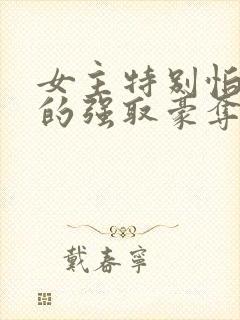 女主特别怕
的强取豪夺
戴春宁